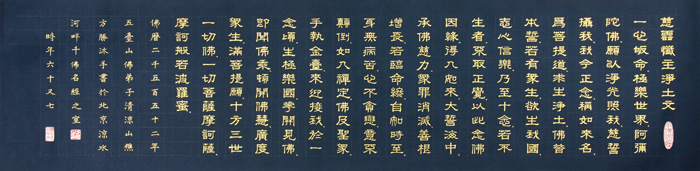 慈雲懺主淨土文
一心皈命極樂世界阿彌
陀佛願以淨光照我慈誓
攝我我今正念稱如來名
為菩提道求生淨土佛昔
本誓若有眾生欲生我國
志心信樂乃至十念若不
生者不取正覺以此念佛
因緣得入如來大誓海中
承佛慈力眾罪消滅善根
增長若臨命終自知時至
身無病苦心不貪戀意不
顛倒如入禪定佛及聖眾
手執金臺來迎接我於一
念頃生極樂國華開見佛
即聞佛乘頓開佛慧廣度
眾生滿菩提願十方三世
一切佛一切菩薩摩訶薩
摩訶般若波羅蜜
佛曆二千五百五十二年
五臺山佛弟子清涼山樵
方勝沐手書於北京涼水
河畔千佛名經之室
時年六十又七